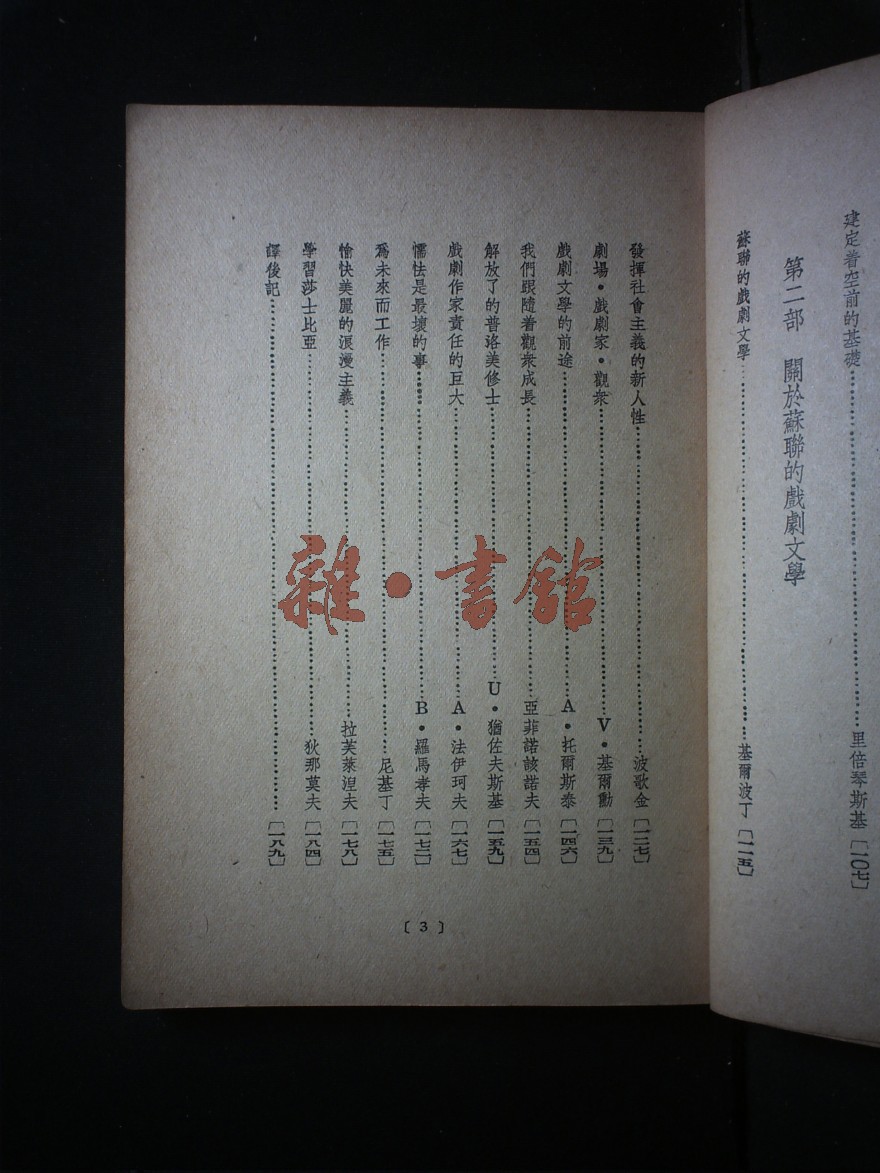 建定着空前的基礎……里倍琴斯基〔一〇七〕
第二部　關於蘇聯的戲劇文學
蘇聯的戲劇文學……基爾波丁〔一一五〕
發揮社會主義的新人性……波歌金〔一二七〕
劇場•戲劇家•觀衆……V•基爾勳〔一三九〕
戲劇文學的前途……A•托爾斯泰〔一四六〕
我們跟隨着觀衆成長……亞菲諾該諾夫〔一五四〕
解放了的普洛美修士……U•猶佐夫斯基〔一五九〕
戲劇作家責任的巨大……A•法伊珂夫〔一六七〕
懦怯是最壞的事……B•羅馬孝夫〔一七二〕
爲未來而工作……尼基丁〔一七五〕
愉快美麗的浪漫主義……拉芙萊涅夫〔一七八〕
學習莎士比亞……狄那莫夫〔一八四〕
譯後記……〔一八九〕
〔3〕
雜•書館